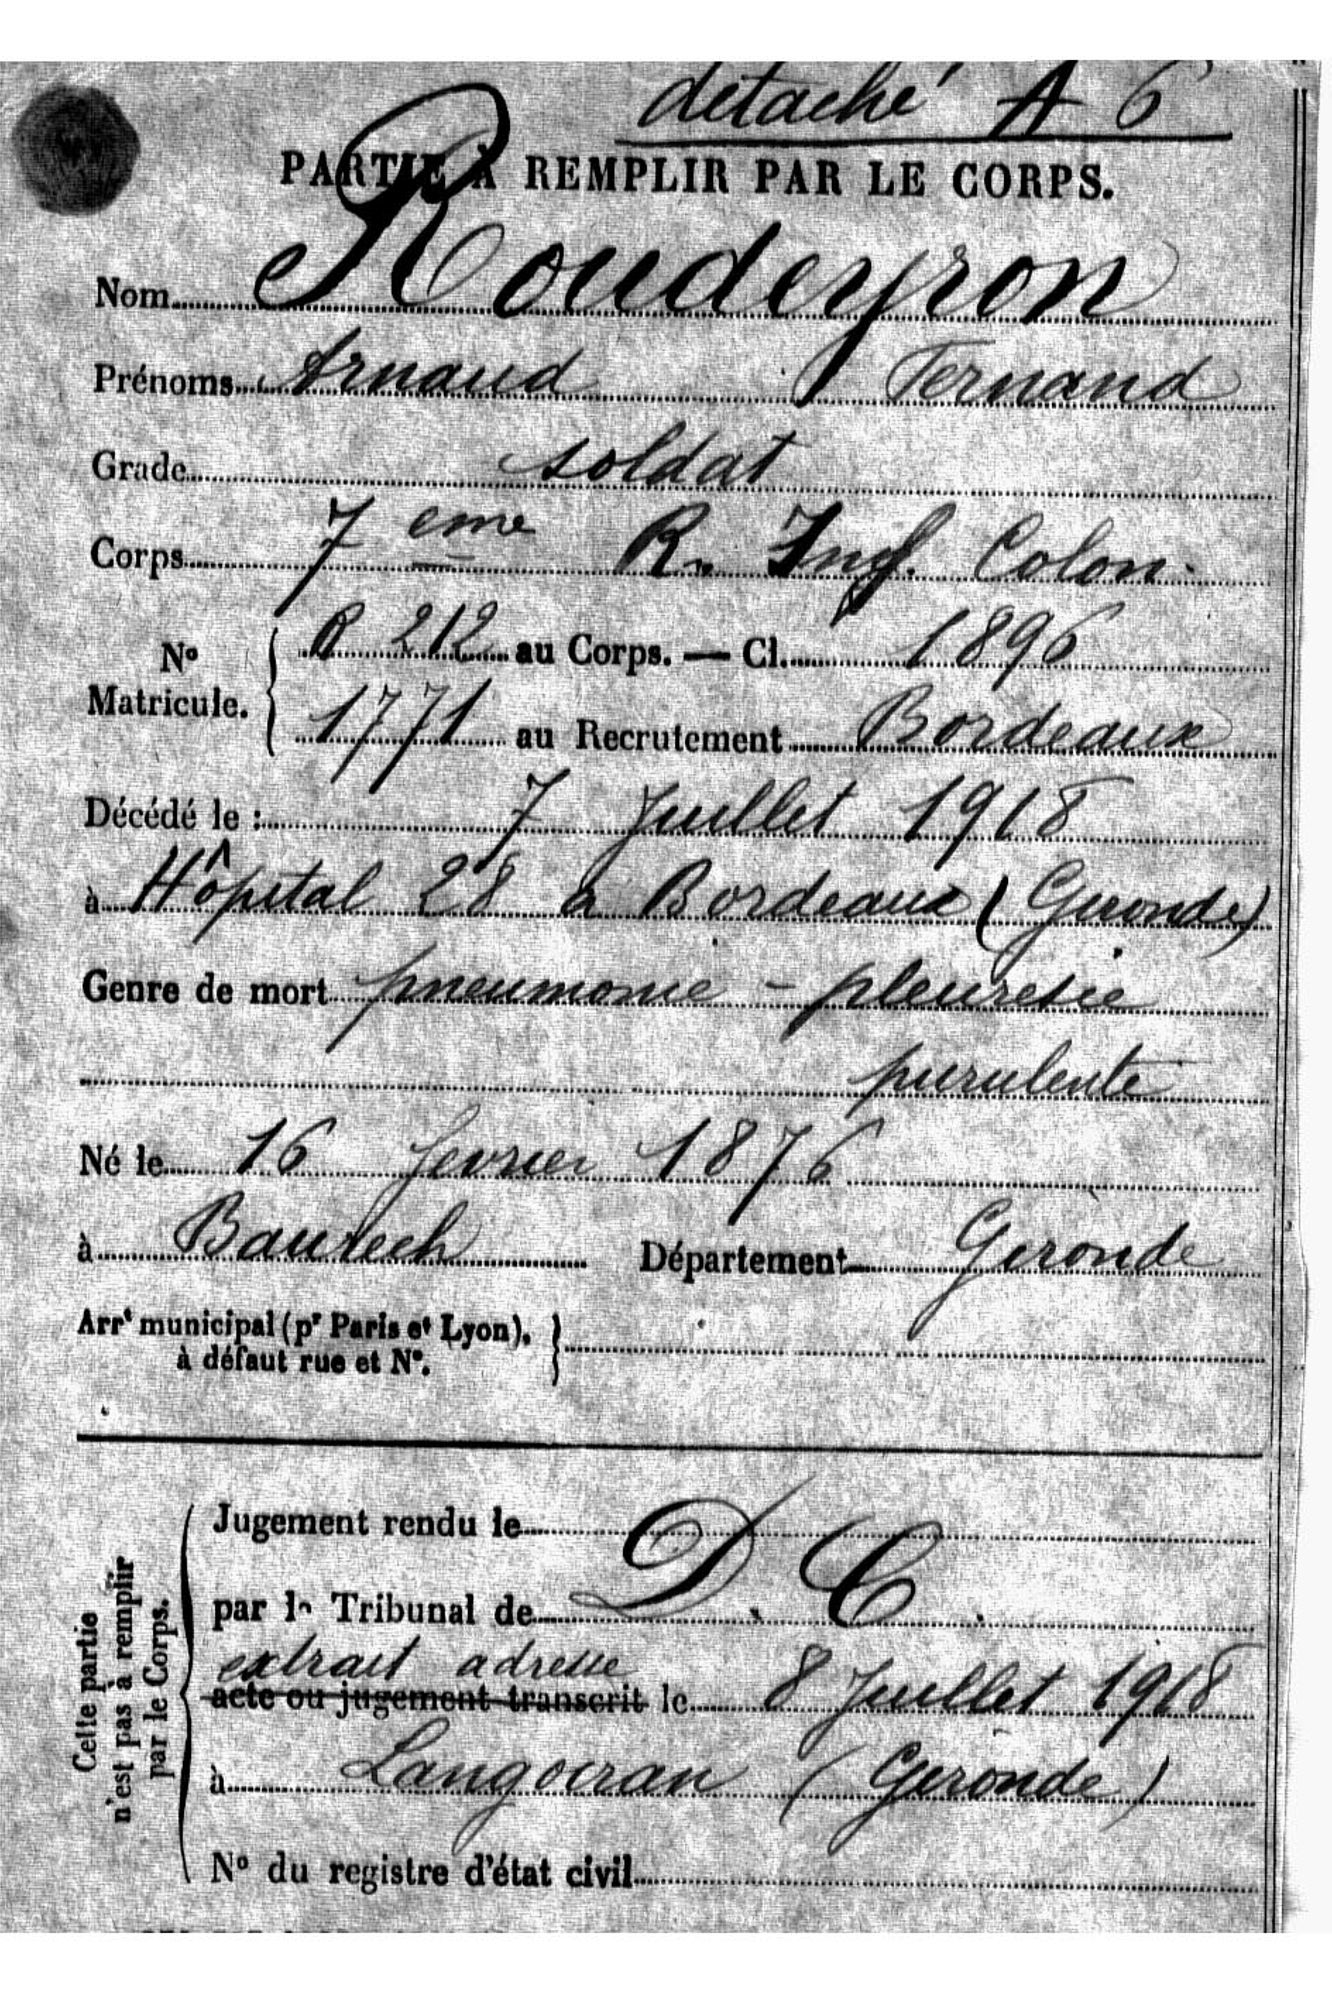 détaché A 6
PARTIE À REMPLIR PAR LE CORPS.
Nom Roudeyron
Prénoms Arnaud Fernand
Grade soldat
Corps 7 eme R. Inf. Colon.
R 212 au Corps. — Cl. 1896
N° Matricule.
1771 au Recrutement Bordeaux
Décédé le : 7 Juillet 1918
à Hôpital 28 a Bordeaux (Gironde)
Genre de mort pneumonie - pleuresie
purulente
Né le 16 fevrier 1876
à Baurech Département Gironde
Arrt municipal (pr Paris et Lyon),
à défaut rue et N°.
Jugement rendu le
D. C.
par le Tribunal de
extrait adresse
acte ou jugement transcrit le 8 Juillet 1918
à Langoiran (Gironde)
N° du registre d'état civil
Cette partie
n'est pas à remplir
par le Corps.